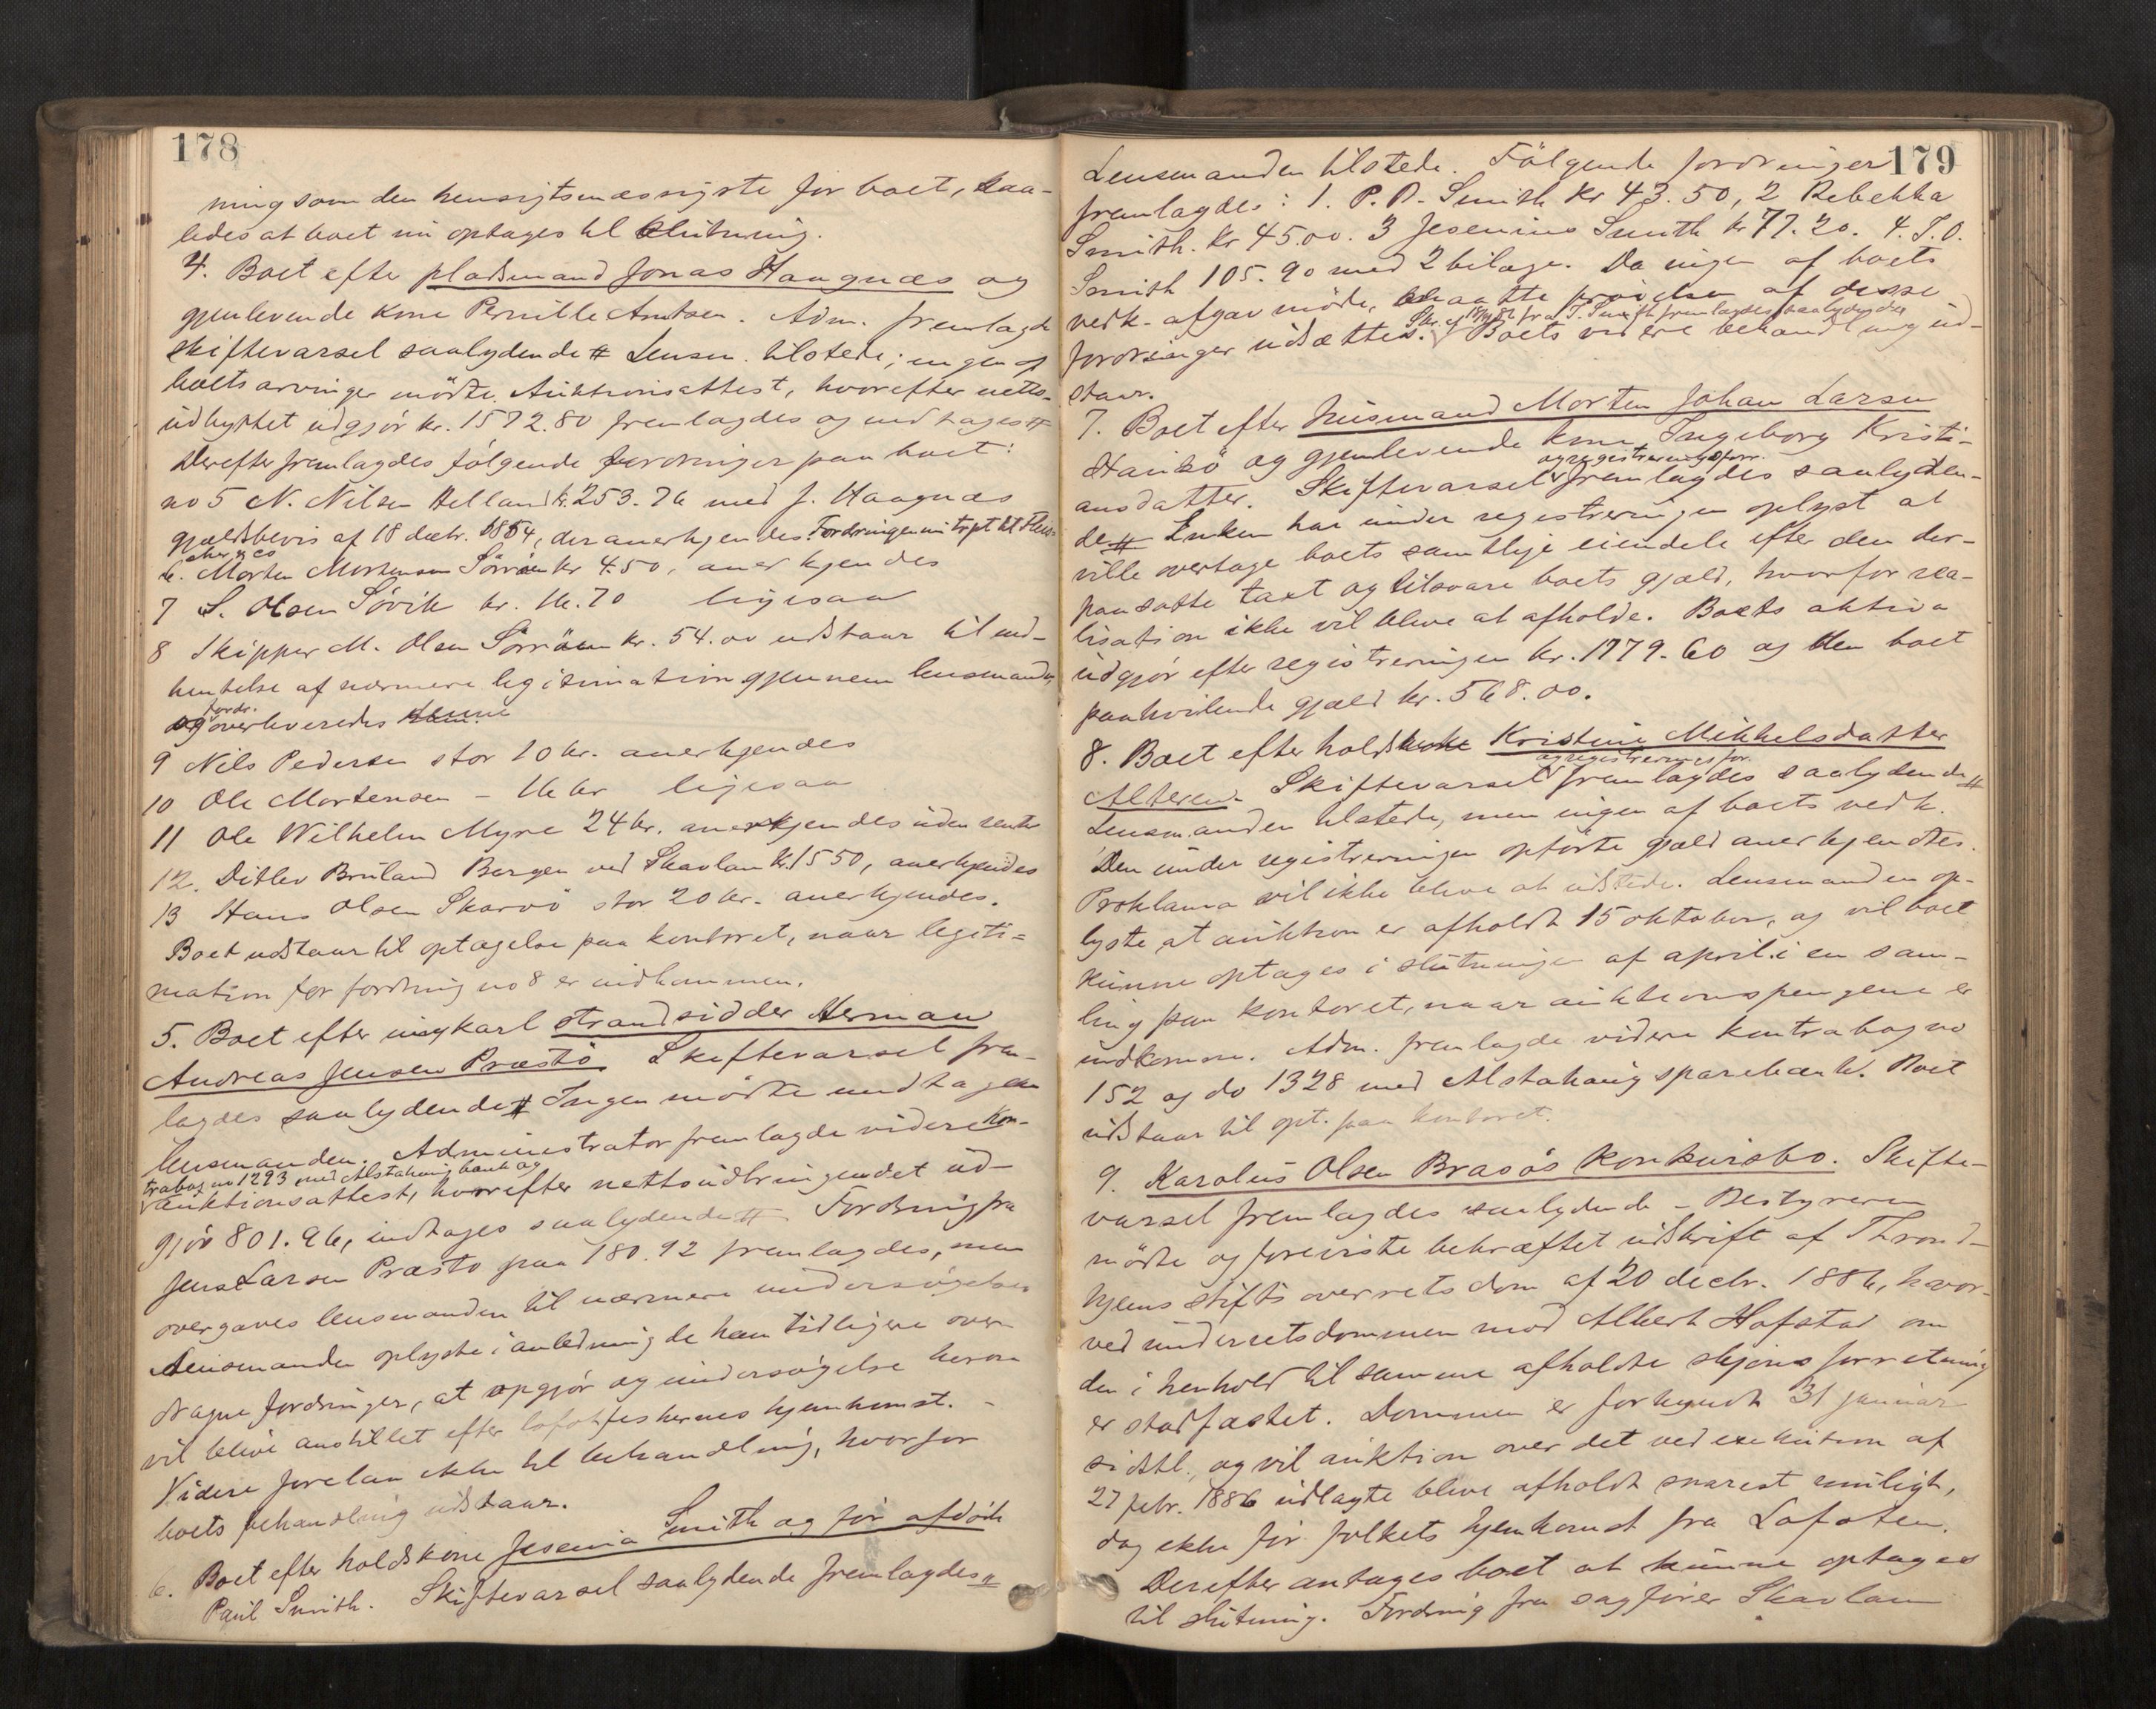 178
ning som den hensigtsmæssigste for boet, saa-
ledes at boet nu optages til slutning.
4. Boet efter pladsmand Jonas Haagnæs og
gjenlevende kone Pernille Arntsen. Adm. fremlagde
skiftevarsel saalydende # Lensm. tilstede; ingen af
boets arvinger mödte. Auktionsattest, hvorefter netto-
udbyttet udgjör kr. 1572.80 fremlagdes og indtages #
Derefter fremlagdes fölgende fordringer paa boet:
no 5 N. Nilsen Helland kr. 253.76 med J. Haagnæs
gjældsbevis af 18 decbr. 1884, der anerkjendes. Fordringen
6. Morten Mortensen Sörråen kr 4.50, anerkjendes
7 S. Olsen Sövik kr. 16.70 ligesaa
8 Skipper M. Olsen Sörråen kr. 54.00 udstaar til ind-
hentelse af nærmere legitimation gjennem lensmanden,
og fordr. overleveredes denne
9 Nils Pedersen stor 10 kr. anerkjendes
10 Ole Mortensen - 16 kr ligesaa
11 Ole Wilhelm Myre 24 kr. anerkjendes uden rente
12. Ditlev Bruland Bergen ved Skavlan kr. 15 50, anerkjendes
13 Hans Olsen Skarvö stor 20 kr. anerkjendes.
Boet udstaar til optagelse paa kontoret, naar legiti-
mation for fordring no 8 er indkommen.
5. Boet efter ungkarl strandsidder Herman
Andreas Jensen Præstö. Skiftevarsel frem-
lagdes saalydende # Ingen mödte undtagen
lensmanden. Administrator fremlagde videre kon-
trabog no 1293 med Alstahaug bank og
auktionsattest, hvorefter nettoudbringendet ud-
gjör 801.96, indtages saalydende # Fordring fra
Jens Larsen Præstö paa 180.92 fremlagdes, men
overgaves lensmanden til nærmere undersögelse
Lensmanden oplyste i anledning de ham tidligere over-
dragne fordringer, at opgjör og undersögelse herom
vil blive anstillet efter lofotfiskernes hjemkomst. -
Videre forelaa ikke til behandling, hvorfor
boets behandling udstaar.
6. Boet efter holdskone Jesenia Smith og för afdöde
Paul Smith. Skiftevarsel saalydende fremlagdes #
179
Lensmanden tilstede. Fölgende fordringer
fremlagdes: 1. P. A. Smith kr 43.50, 2 Rebekka
Smith. kr 45.00. 3 Jesenius Smith kr 77.20. 4. T. O.
Smith 105.90 med 2 bilage. Da ingen af boets
vedk. afgav möde, maatte pröven af disse
fordringer udsættes. Boets videre behandling ud-
staar.
7. Boet efter husmand Morten Johan Larsen
Hauksö og gjenlevende kone, Ingeborg Kristi-
ansdatter. Skiftevarsel og registreringsforr. fremlagdes saalyden-
de # Enken har under registreringen oplyst at
ville overtage boets samtlige eiendele efter den der-
paa satte taxt og tilsvare boets gjæld, hvorfor rea-
lisation ikke vil blive at afholde. Boets aktiva
udgjör efter registreringen kr. 1779.60 og den boet
paahvilende gjæld kr. 568.00.
8. Boet efter holdskone Kristine Mikkelsdatter
Alteren. Skiftevarsel og registreringsfor. fremlagdes saalydende #
Lensmanden tilstede, men ingen af boets vedk.
Den under registreringen opförte gjæld anerkjendtes.
Proklama vil ikke blive at udstede. Lensmanden op-
lyste, at auktion er afholdt 15 oktober, og vil boet
kunne optages i slutningen af april i en sam-
ling paa kontoret, naar auktionspengene er
indkomne. Adm. fremlagde videre kontrabog no
152 og do 1328 med Alstahaug sparebank. Boet
udstaar til opt. paa kontoret.
9. Karolus Olsen Brasös konkursbo. Skifte-
varsel fremlagdes saalydende - Bestyreren
mödte og foreviste bekræftet udskrift af Thrond-
hjems stifts overrets dom af 20 decbr. 1886, hvor-
ved underretsdommen mod Albert Hofstad om
den i henhold til samme afholdte skjönsforretning
er stadfæstet. Dommen er forkyndt 31 januar
sidstl., og vil auktion over det ved exekution af
27 febr. 1886 udlagte blive afholdt snarest muligt,
dog ikke för folkets hjemkomst fra Lofoten.
Derefter antages boet at kunne optages
til slutning. Fordring fra sagförer Skavlan